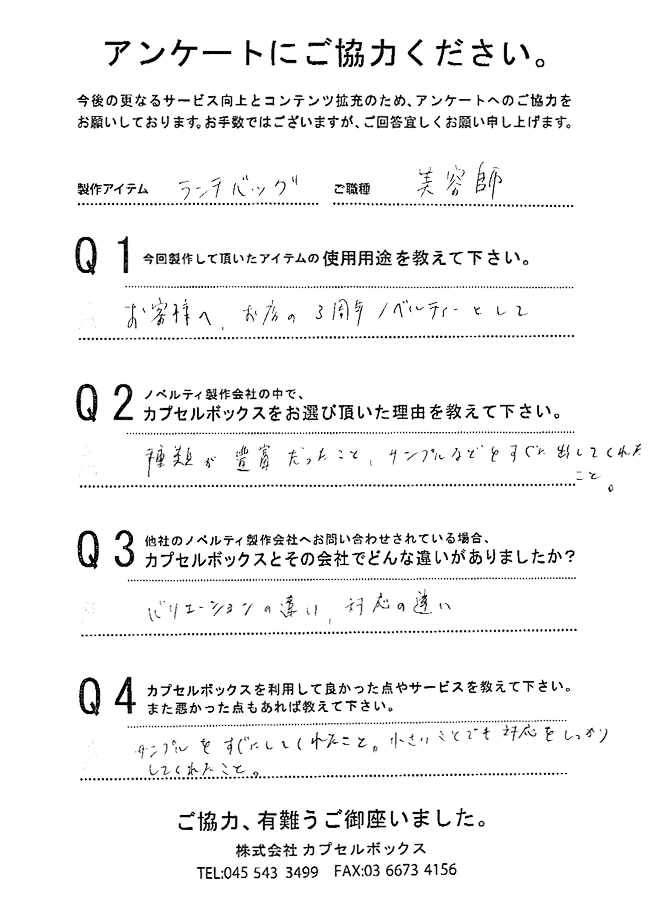 アンケートにご協力ください。
今後の更なるサービス向上とコンテンツ拡充のため、アンケートへのご協力を
お願いしております。お手数ではございますが、ご回答宜しくお願い申し上げます。
製作アイテム ランチバッグ ご職種 美容師
Q1 今回製作して頂いたアイテムの使用用途を教えて下さい。
お客様へ、お店の3周年ノベルティーとして
Q2 ノベルティ製作会社の中で、
カプセルボックスをお選び頂いた理由を教えて下さい。
種類が豊富だったこと、サンプルなどをすぐに出してくれた
こと。
Q3 他社のノベルティ製作会社へお問い合わせされている場合、
カプセルボックスとその会社でどんな違いがありましたか?
バリエーションの違い、対応の違い
Q4 カプセルボックスを利用して良かった点やサービスを教えて下さい。
また悪かった点もあれば教えて下さい。
サンプルをすぐにしてくれたこと。小さいことでも対応をしっかり
してくれたこと。
ご協力、有難うご御座いました。
株式会社カプセルボックス
TEL:045 543 3499 FAX:03 6673 4156